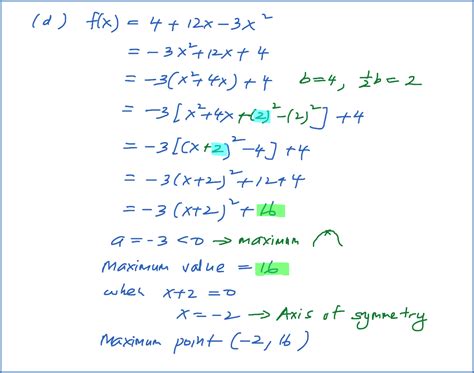 (d) f(x) = 4 + 12x - 3x²
= -3x² + 12x + 4
= -3(x² + 4x) + 4 b=4, ½b = 2
= -3[x² + 4x + (2)² - (2)²] + 4
= -3[(x+2)² - 4] + 4
= -3(x+2)² + 12 + 4
= -3(x+2)² + 16
a = -3 < 0 → maximum
Maximum value = 16
when x+2 = 0
x = -2 → Axis of symmetry
Maximum point (-2, 16)